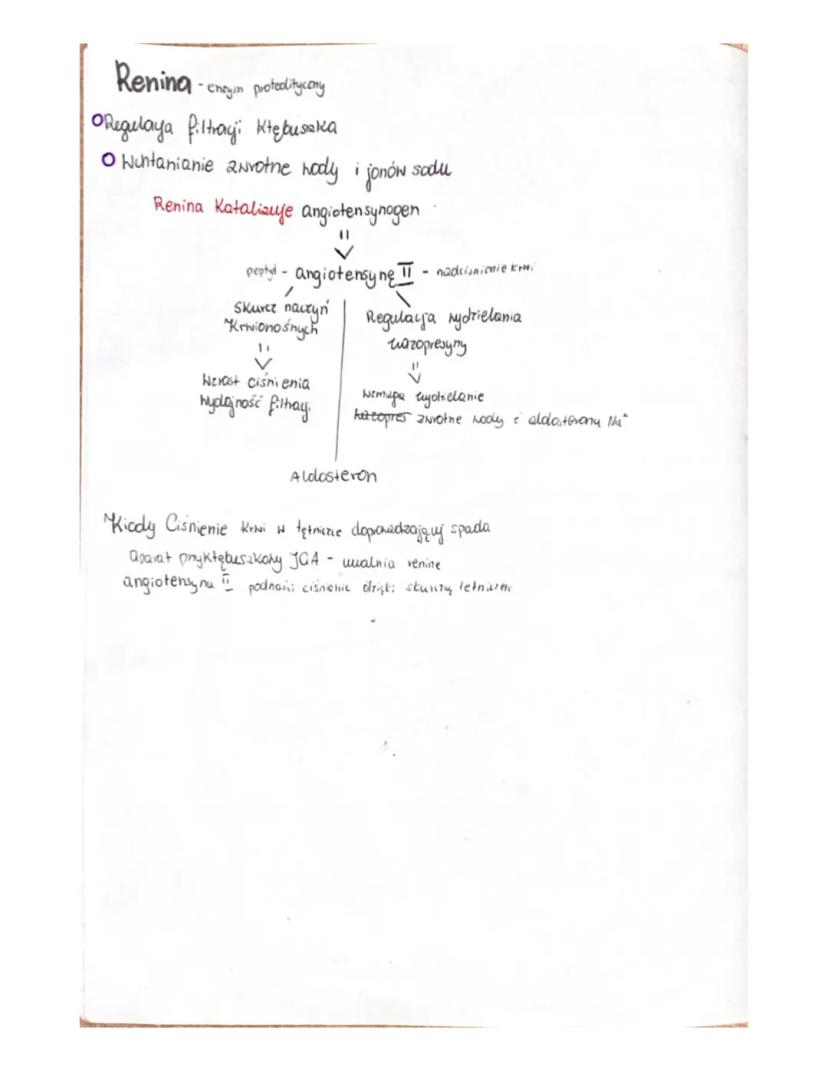 Renina - enzym proteolityczny
Regulacja filtracji kłębuszka
Wchłanianie zwrotne wody i jonów sodu
Renina Katalizuje angiotensynogen
peptyd - angiotensynę II - nadciśnienie krwi
Skurcz naczyń
Krwionośnych
Wzrost ciśnienia
wydajność filtracji
Regulacja wydzielania
wazopresyny
wydzielanie
zwrotne wody i aldosteronu Na+
Aldosteron
Kiedy Ciśnienie krwi w tętnicze doprowadzającej spada
aparat przykłębuszkowy JGA - uwalnia renine
angiotensyna II podnosi ciśnienie dzięki skurczy tetniczek